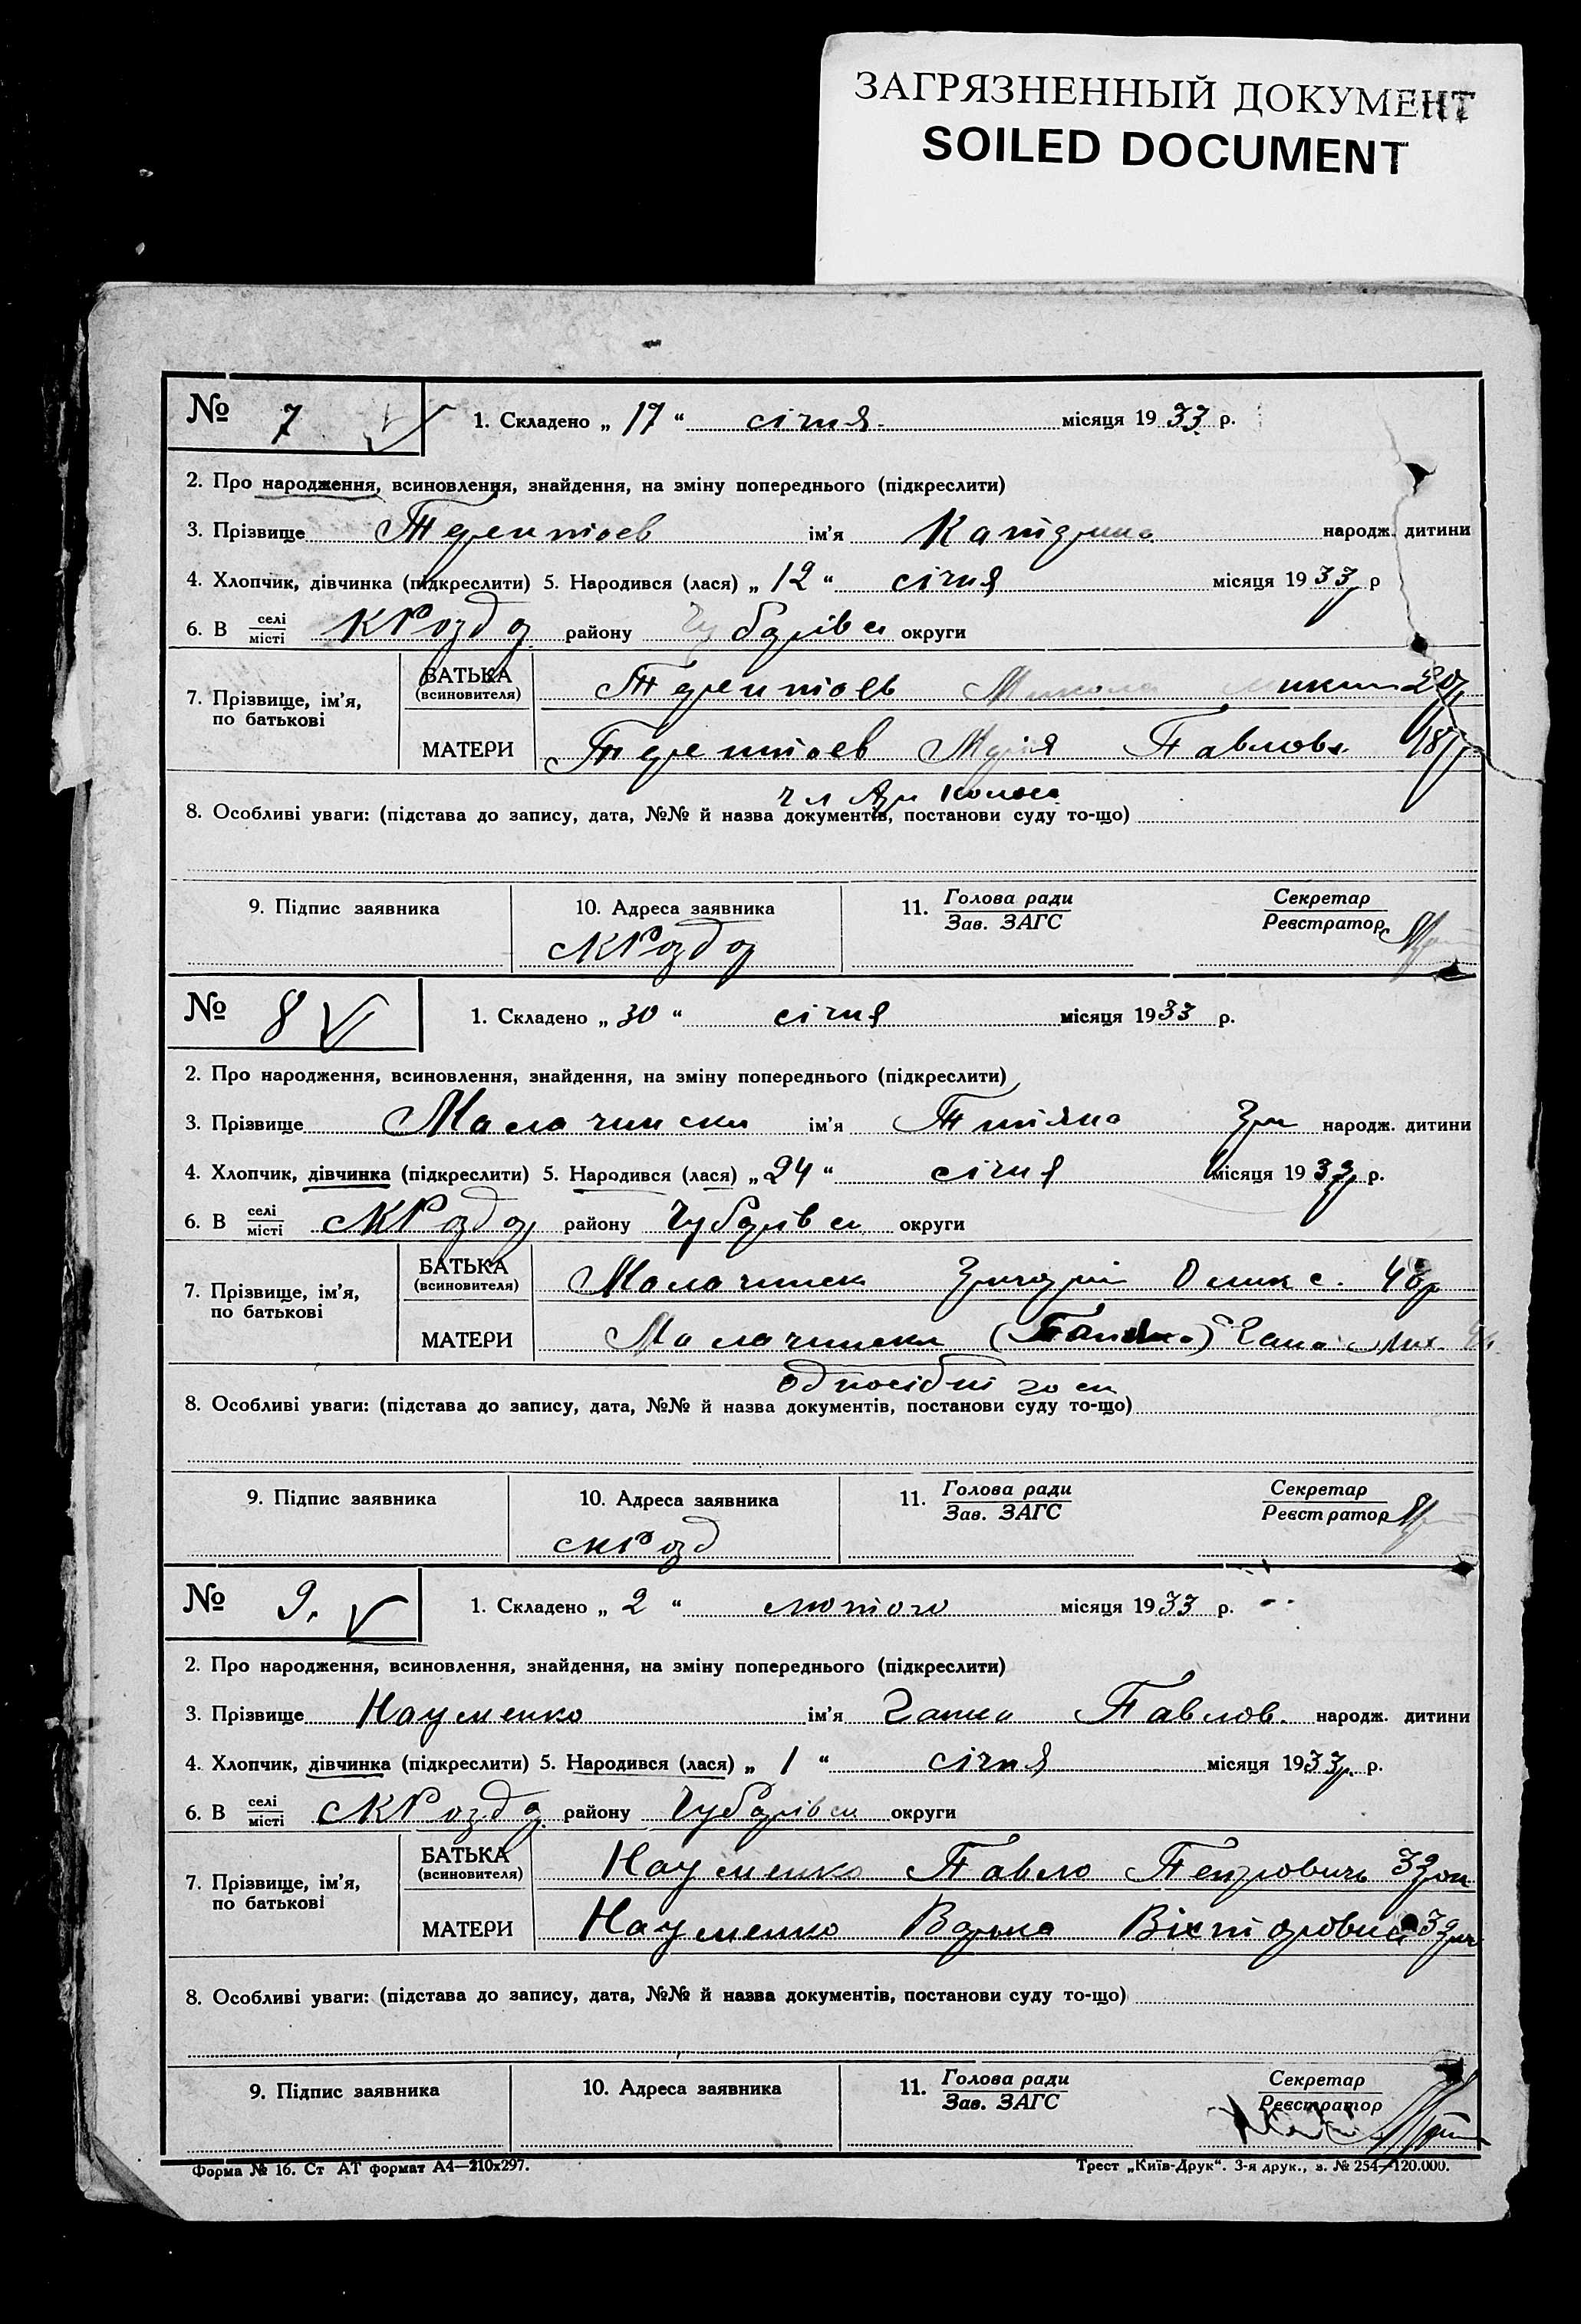 ЗАГРЯЗНЕННЫЙ ДОКУМЕНТ
SOILED DOCUMENT
№ 7
1. Складено „ 17 “ січня місяця 1933 р.
2. Про народження, всиновлення, знайдення, на зміну попереднього (підкреслити)
3. Прізвище Терентьев ім’я Катерина народж. дитини
4. Хлопчик, дівчинка (підкреслити) 5. Народився (лася) „ 12 “ січня місяця 1933 р
6. В селі місті району Чубарівськ округи
7. Прізвище, ім’я, по батькові
БАТЬКА (всиновителя) Терентьев Микола
МАТЕРИ Терентьев Марія Павловн.
8. Особливі уваги: (підстава до запису, дата, №№ й назва документів, постанови суду то-що)
9. Підпис заявника
10. Адреса заявника
11. Голова ради Зав. ЗАГС
Секретар Реєстратор
№ 8
1. Складено „ 30 “ січня місяця 1933 р.
2. Про народження, всиновлення, знайдення, на зміну попереднього (підкреслити)
3. Прізвище ім’я народж. дитини
4. Хлопчик, дівчинка (підкреслити) 5. Народився (лася) „ 24 “ січня місяця 1933 р.
6. В селі місті району Чубарівськ округи
7. Прізвище, ім’я, по батькові
БАТЬКА (всиновителя) Григорій
МАТЕРИ
одноосібні
8. Особливі уваги: (підстава до запису, дата, №№ й назва документів, постанови суду то-що)
9. Підпис заявника
10. Адреса заявника
11. Голова ради Зав. ЗАГС
Секретар Реєстратор
№ 9.
1. Складено „ 2 “ лютого місяця 1933 р.
2. Про народження, всиновлення, знайдення, на зміну попереднього (підкреслити)
3. Прізвище Науменко ім’я Ганна Павлов. народж. дитини
4. Хлопчик, дівчинка (підкреслити) 5. Народився (лася) „ 1 “ січня місяця 1933 р.
6. В селі місті району Чубарівськ округи
7. Прізвище, ім’я, по батькові
БАТЬКА (всиновителя) Науменко Павло Петрович
МАТЕРИ Науменко Варька Вікторовна
8. Особливі уваги: (підстава до запису, дата, №№ й назва документів, постанови суду то-що)
9. Підпис заявника
10. Адреса заявника
11. Голова ради Зав. ЗАГС
Секретар Реєстратор
Форма № 16. Ст АТ формат А4—210х297.
Трест „Київ-Друк“. 3-я друк., з. № 254—120.000.